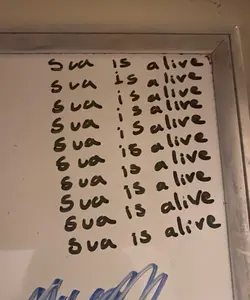 Sua is alive
Sua is alive
Sua is alive
Sua is alive
Sua is alive
Sua is alive
Sua is alive
Sua is alive
Sua is alive
Sua is alive